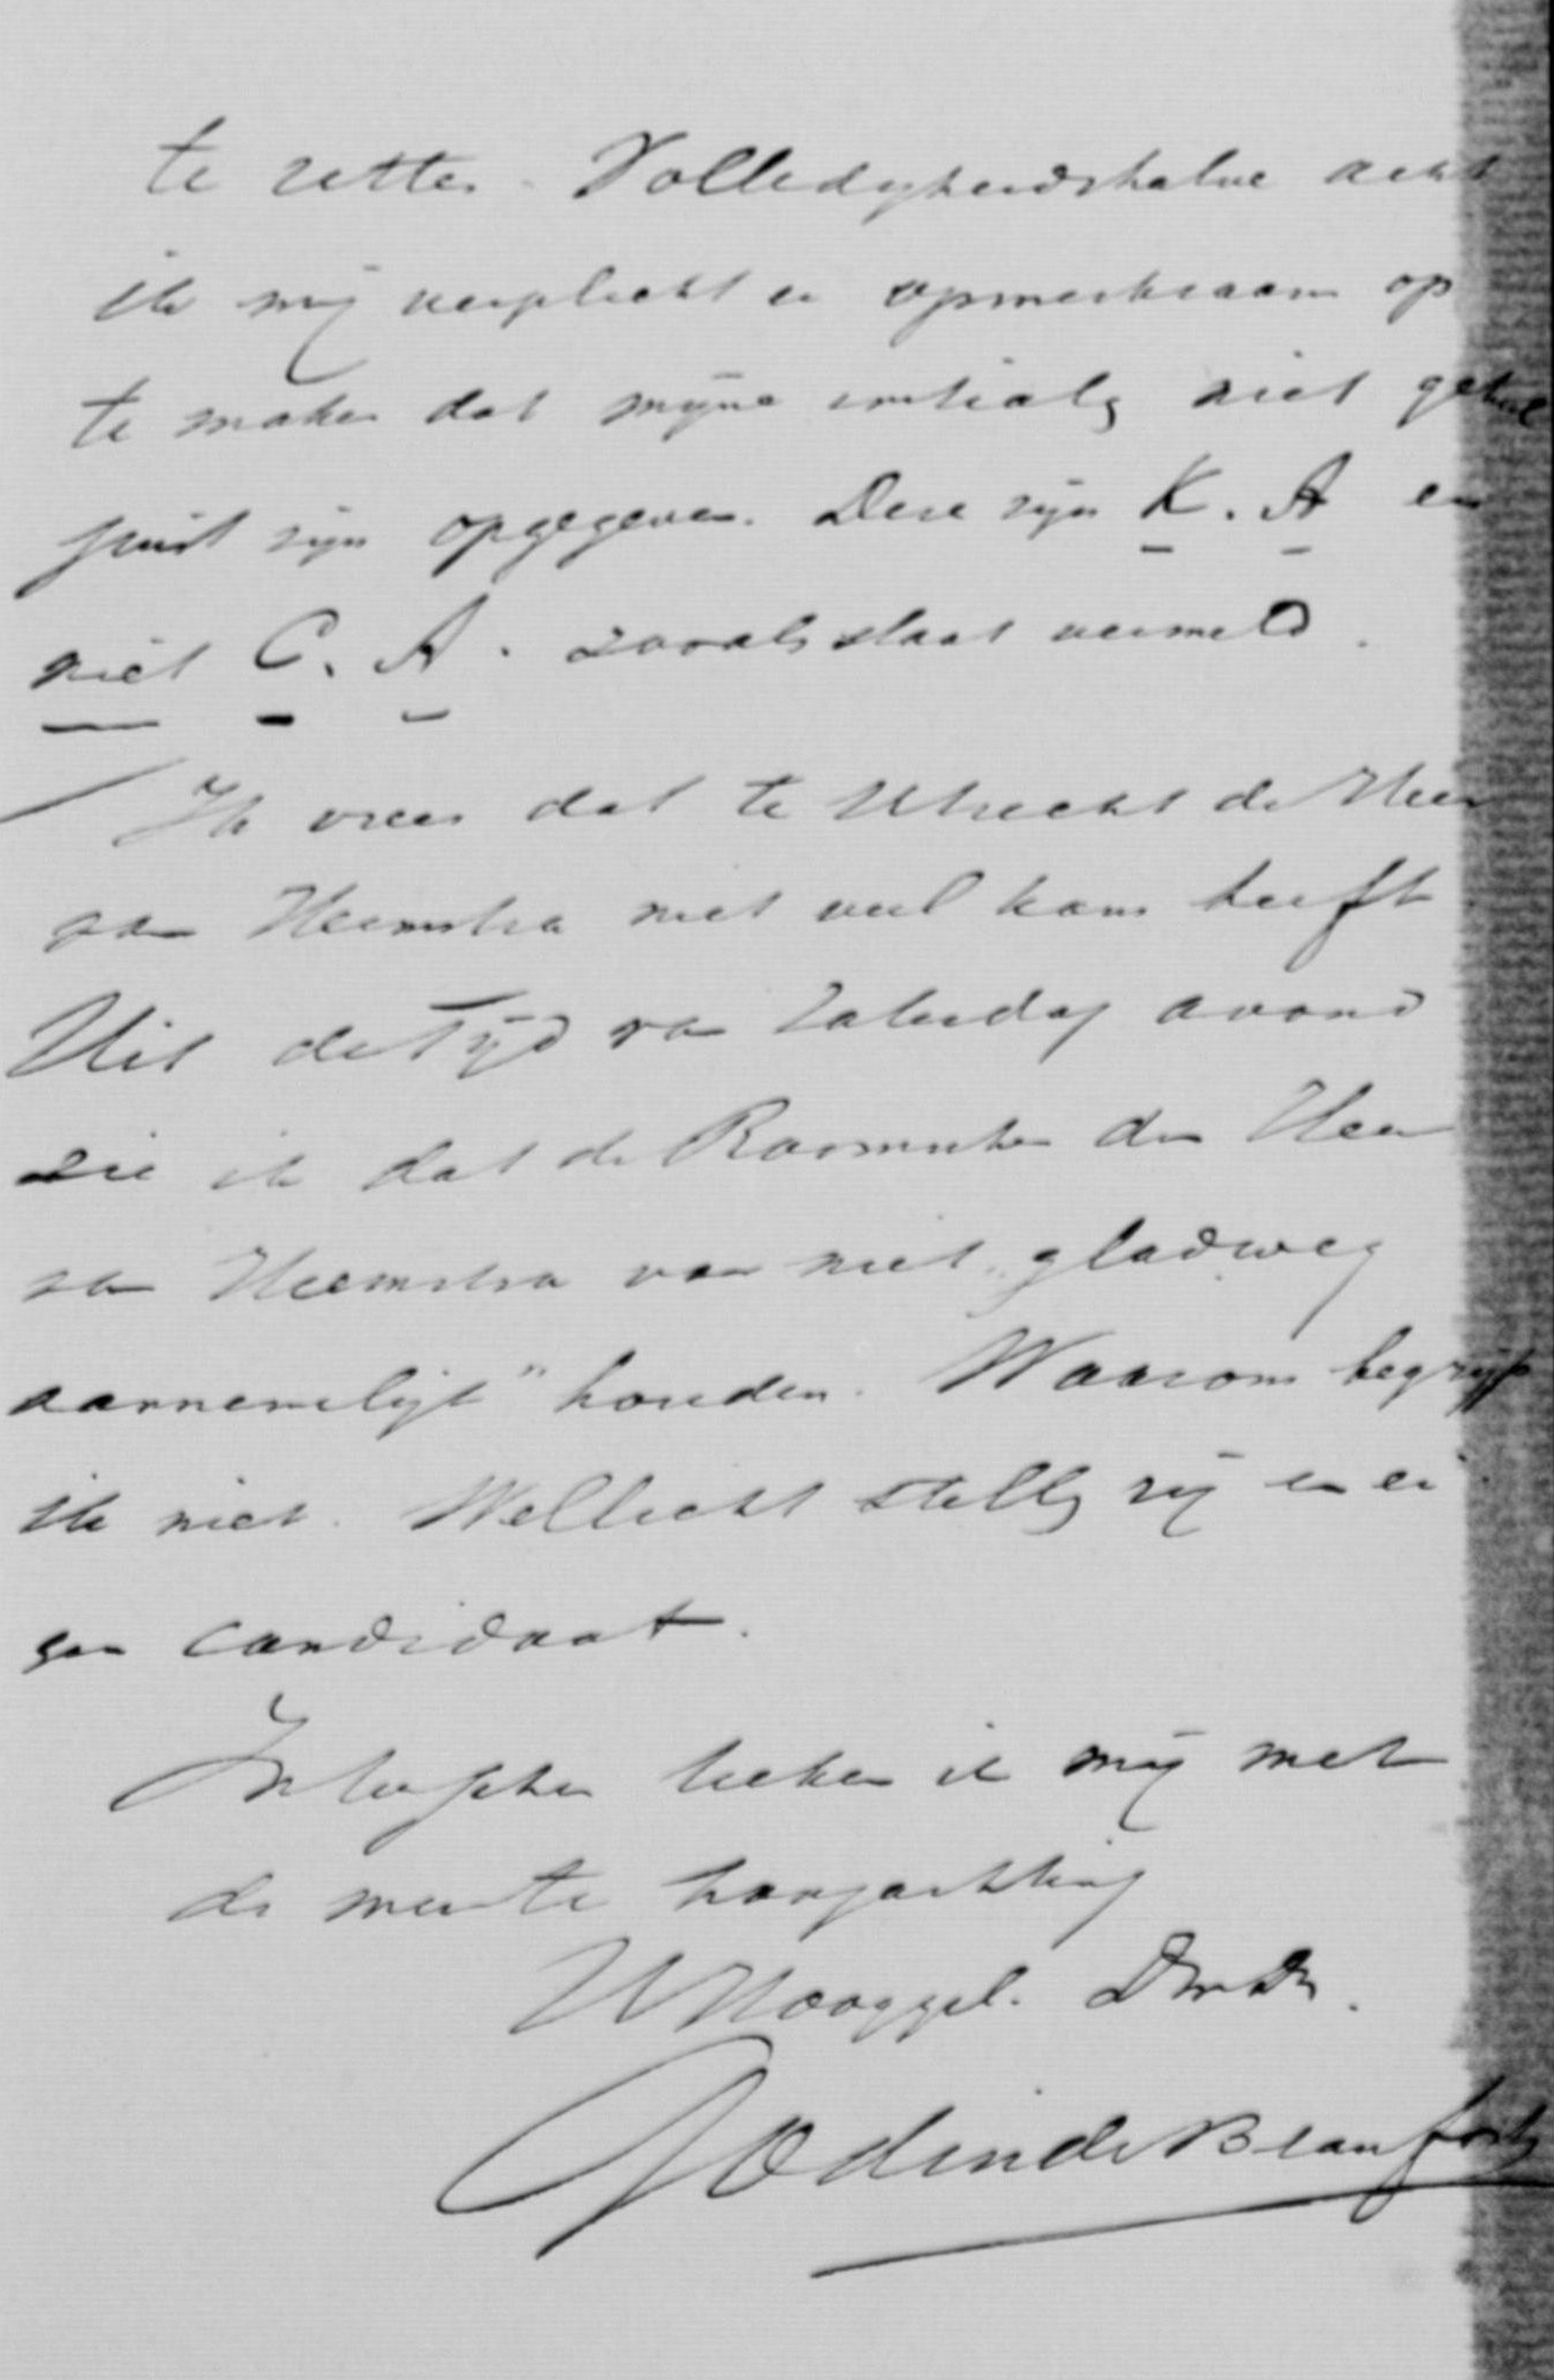 te zetten. Volledigheidshalve acht
ik mij verplicht er opmerkzaam op
te maken dat mijne initials niet geheel
juist zijn opgegeven. Deze zijn K. A en
niet C. A. zooals staat vermeld.
Ik vrees dat te Utrecht de Heer
van Heemstra niet veel kans heeft
Uit de Tijd van Zaterdag avond
zie ik dat de Roomschen den Heer
van Heemstra voor niet "gladweg
aannemelijk" houden. Waarom begrijp
ik niet. Wellicht stellen zij een ei
gen candidaat.
Intusschen teeken ik mij met
de meeste hoogachting
UHooggel. DwDr.
Godin de Beaufort